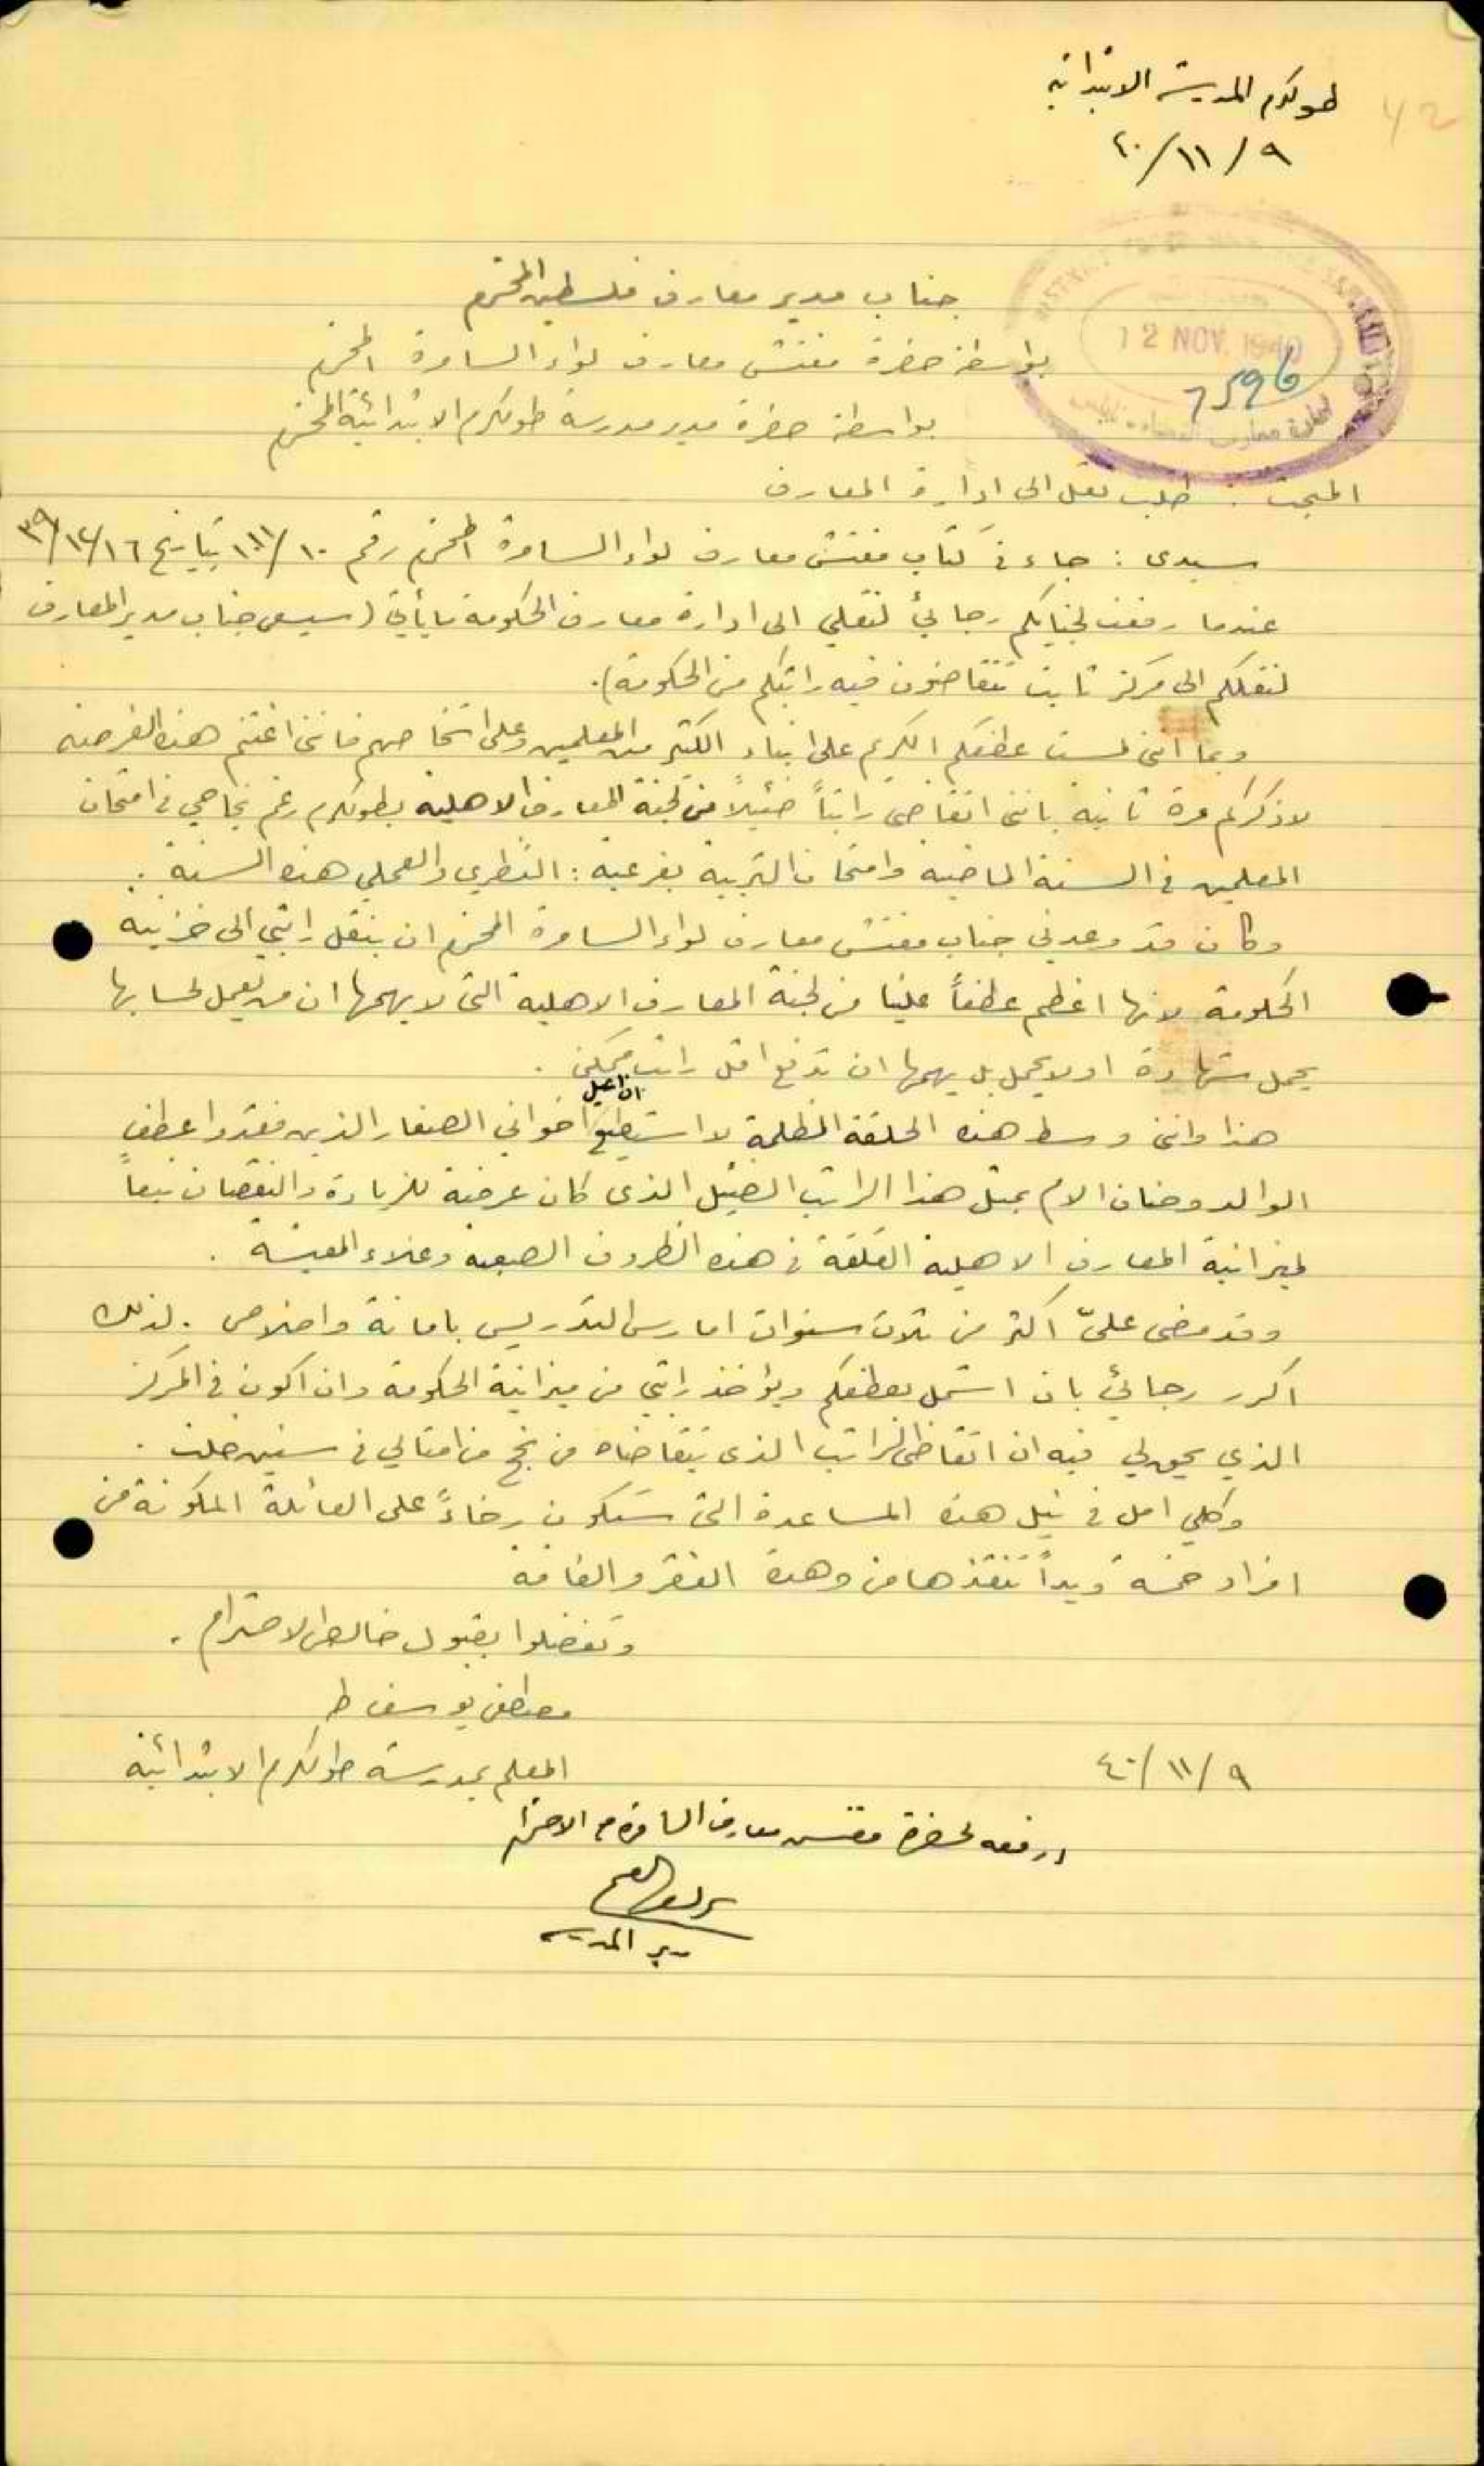 42
طولكرم المدرسة الابتدائية
٩/١١/٤٠
12 NOV. 1940
7596
جناب مدير معارف فلسطين المحترم
بواسطة حضرة مفتش معارف لواء السامرة المحترم
بواسطة حضرة مدير مدرسة طولكرم الابتدائية المحترم
المبحث : طلب نقل الى ادارة المعارف
سيدي : جاء في كتاب مفتش معارف لواء السامرة المحترم رقم ١٠/١١١ بتاريخ ١٦/١٢/٣٩
عندما رفعت لجنابكم رجائي لنقلي الى ادارة معارف الحكومة ما يأتي (سيسعى جناب مدير المعارف
لنقلكم الى مركز ثابت تتقاضون فيه راتبكم من الحكومة).
وبما انني لمست عطفكم الكريم على ابناء الكثير من المعلمين وعلى اشخاصهم فانني اغتنم هذه الفرصة
لاذكركم مرة ثانية بانني اتقاضى راتباً ضئيلاً من لجنة المعارف الاهلية بطولكرم رغم نجاحي في امتحان
المعلمين في السنة الماضية وامتحان التربية بفرعيه : النظري والعملي هذه السنة .
وكان قد وعدني جناب مفتش معارف لواء السامرة المحترم ان ينقل راتبي الى خزينة
الحكومة لانها اعظم عطفاً علينا من لجنة المعارف الاهلية التي لا يهمها ان من يعمل لحسابها
يحمل شهادة او لا يحمل بل يهمها ان تدفع اقل راتب ممكن .
هذا وانني وسط هذه الحلقة المظلمة لا استطيع ان اعيل اخواني الصغار الذين فقدوا عطف
الوالد وحنان الام بمثل هذا الراتب الضئيل الذي كان عرضة للزيادة والنقصان تبعاً
لميزانية المعارف الاهلية القلقة في هذه الظروف الصعبة وغلاء المعيشة .
وقد مضى عليّ اكثر من ثلاث سنوات امارس التدريس بامانة واخلاص . لذلك
اكرر رجائي بان اشمل بعطفكم ويؤخذ راتبي من ميزانية الحكومة وان اكون في المركز
الذي يحق لي فيه ان اتقاضى الراتب الذي يتقاضاه من نجح من امثالي في سنين خلت .
وكلي امل في نيل هذه المساعدة التي ستكون رخاءً على العائلة المكونة من
افراد خمسة ويداً تنقذها من وهدة الفقر والفاقة
وتفضلوا بقبول خالص الاحترام .
مصطفى يوسف ط
المعلم بمدرسة طولكرم الابتدائية
٩/١١/٤٠
ارفعه لحضرة مفتش معارف السامرة مع الاحترام
مدير المدرسة